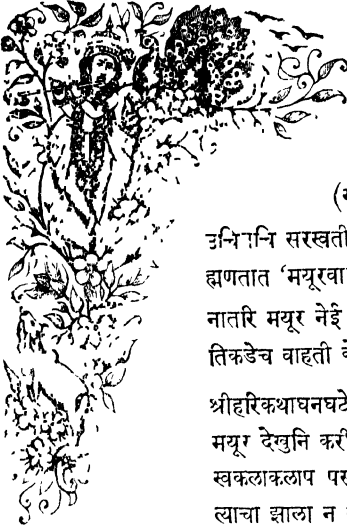 सरस्वती
ह्मणतात ‘मयूरवा
नातरि मयूर नेई
तिकडेच वाहती
श्रीहरिकथाघनघटे
मयूर देखुनि करी
स्वकलाकलाप
त्याचा झाला न